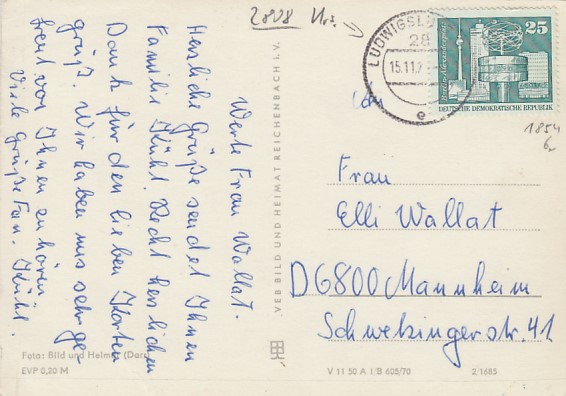 2808 Us.
LUDWIGSL
28
15.11.7
e
25
Berlin-Alexanderplatz
DEUTSCHE DEMOKRATISCHE REPUBLIK
1854
6,-
Werte Frau Wallat.
Herzliche Grüße sendet Ihnen
Familie Kühl. Recht herzlichen
Dank für den lieben Karten
gruß. Wir haben uns sehr ge-
freut von Ihnen zu hören
Viele Grüße Fam. Kühl.
Foto: Bild und Heimat (Dars)
EVP 0,20 M
VEB BILD UND HEIMAT REICHENBACH I. V.
Frau
Elli Wallat
D6800 Mannheim
Schwetzingerstr. 41
V 11 50 A I/B 605/70 2/1685